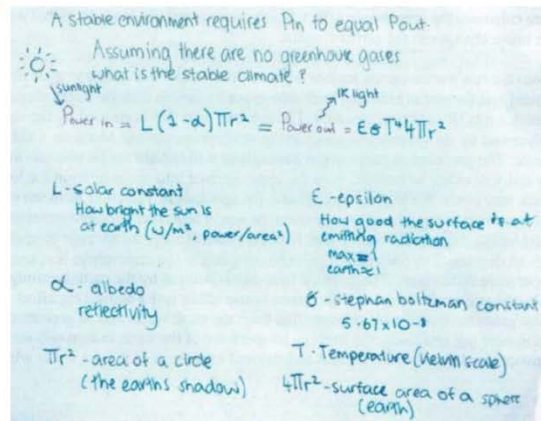 A stable environment requires Pin to equal Pout.
Assuming there are no greenhouse gases
what is the stable climate?
sunlight
IR light
Power in = L(1-α)πr² = Power out = EσT⁴4πr²
L - solar constant
How bright the sun is
at earth (W/m², power/area²)
α - albedo
reflectivity
πr² - area of a circle
(the earths shadow)
E - epsilon
How good the surface is at
emitting radiation
max = 1
earth ≈ 1
σ - stephan boltzman constant
5.67x10-8
T - Temperature (kelvin scale)
4πr² - surface area of a sphere
(earth)